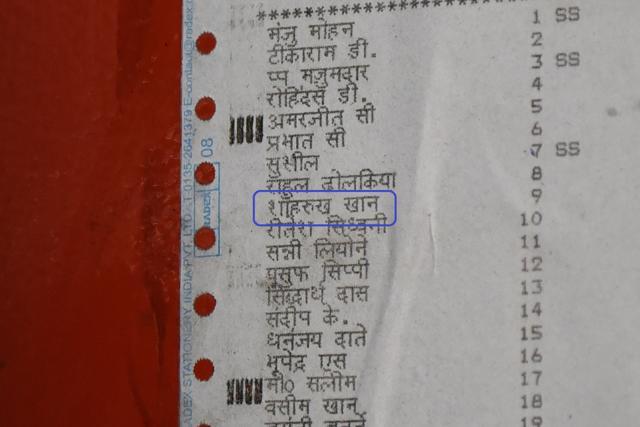 ********************
मंजु मोहन 1 SS
टीकाराम डी. 2
प्प मजुमदार 3 SS
रोहिदस डी. 4
अमरजीत सी 5
प्रभात सी 6
सुशील 7 SS
राहुल ढोलकिया 8
शाहरुख खान 9
रीतेश सिधवानी 10
सन्नी लियोने 11
युसुफ सिप्पी 12
सिद्धार्थ दास 13
संदीप के. 14
धनंजय दाते 15
भूपेंद्र एस 16
मो0 सलीम 17
वसीम खान 18
19
ADEX STATIONERY INDIA PVT. LTD. T:0135-2641379 E-contact@radex
08